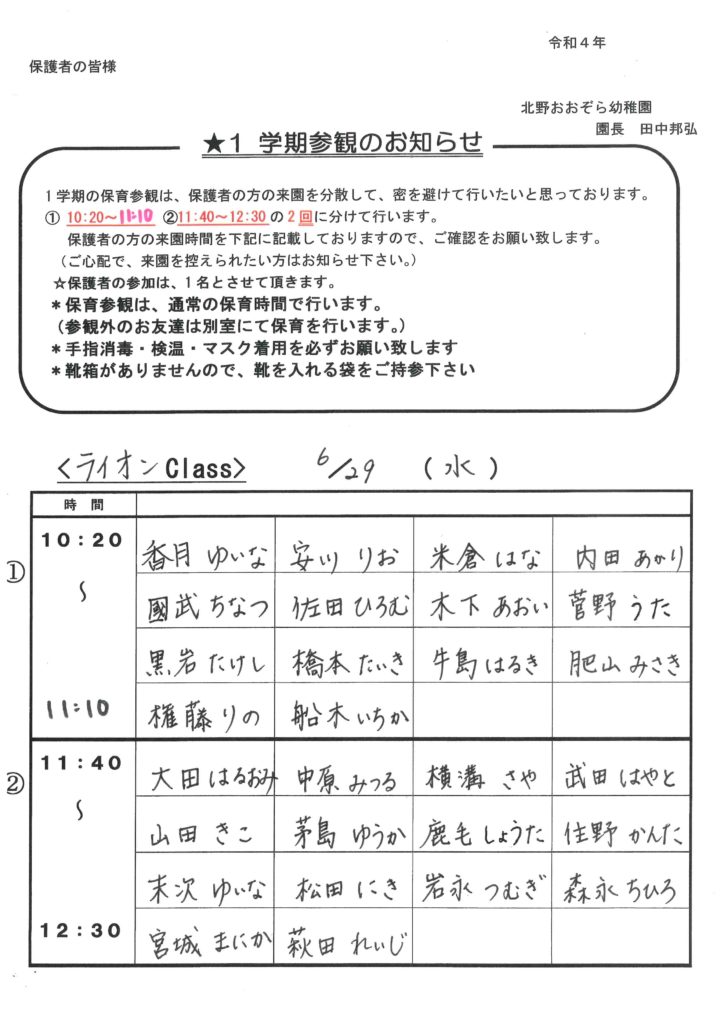 令和４年
保護者の皆様
北野おおぞら幼稚園
園長　田中邦弘
★１ 学期参観のお知らせ
１学期の保育参観は、保護者の方の来園を分散して、密を避けて行いたいと思っております。
① 10:20～11:10 ②11:40～12:30 の 2 回に分けて行います。
保護者の方の来園時間を下記に記載しておりますので、ご確認をお願い致します。
（ご心配で、来園を控えられたい方はお知らせ下さい。）
☆保護者の参加は、１名とさせて頂きます。
＊保育参観は、通常の保育時間で行います。
（参観外のお友達は別室にて保育を行います。）
＊手指消毒・検温・マスク着用を必ずお願い致します
＊靴箱がありませんので、靴を入れる袋をご持参下さい
＜ライオン Class＞　6/29　（水）
時　間
① 10：20 ～ 11:10
香月 ゆいな　安川 りお　米倉 はな　内田 あかり
國武 ちなつ　佐田 ひろむ　木下 あおい　菅野 うた
黒岩 たけし　橋本 たいき　牛島 はるき　肥山 みさき
権藤 りの　船木 いちか
② 11：40 ～ 12：30
大田 はるおみ　中原 みつる　横溝 さや　武田 はやと
山田 きこ　茅島 ゆうか　鹿毛 しょうた　住野 かんた
末次 ゆいな　松田 にき　岩永 つむぎ　森永 ちひろ
宮城 まにか　萩田 れいじ